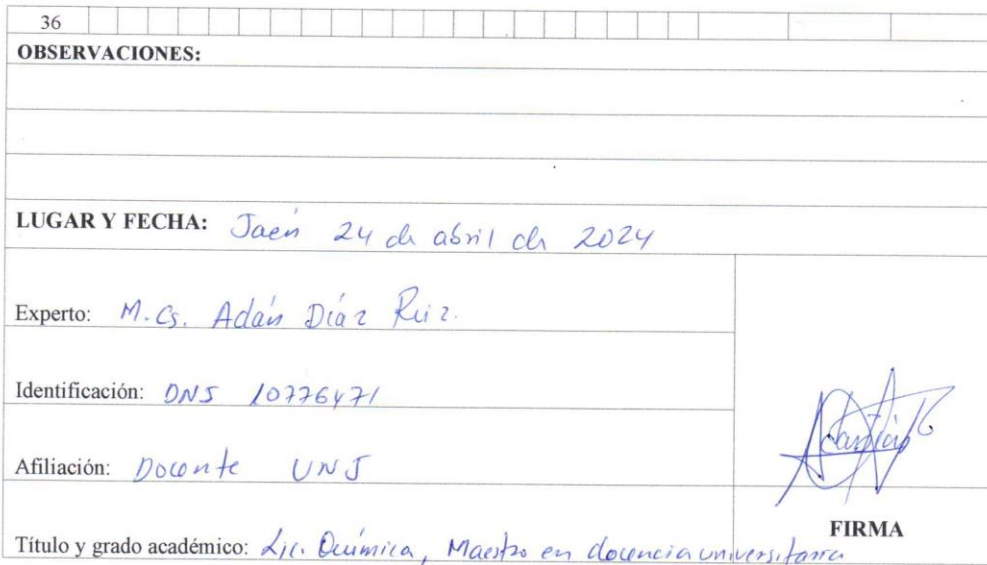 36
OBSERVACIONES:
LUGAR Y FECHA: Jaén 24 de abril de 2024
Experto: M.Cs. Adán Díaz Ruiz.
Identificación: DNI 10776471
Afiliación: Docente UNJ
Título y grado académico: Lic. Química, Maestro en docencia universitaria
FIRMA